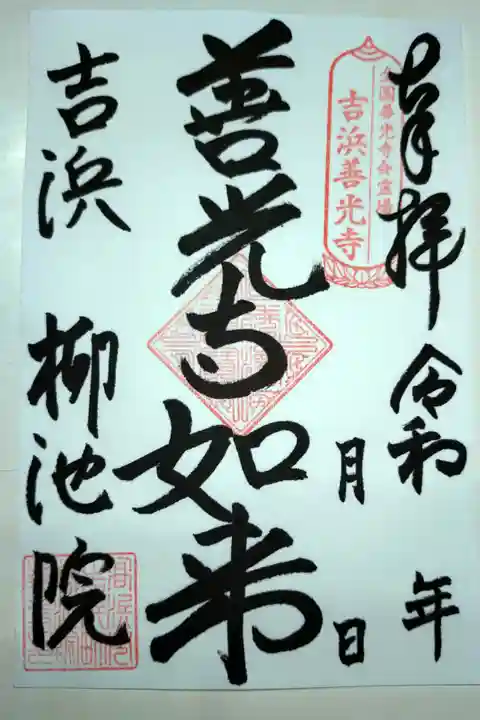 奉拝
令和 年
月 日
全国善光寺会霊場
吉浜善光寺
善光寺如来
吉浜 柳池院